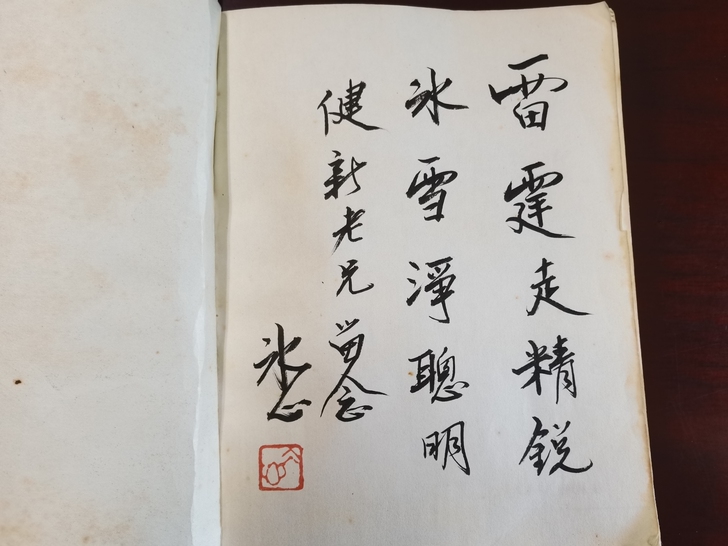 雷霆走精銳
冰雪淨聰明
健新老兄留念
冰心